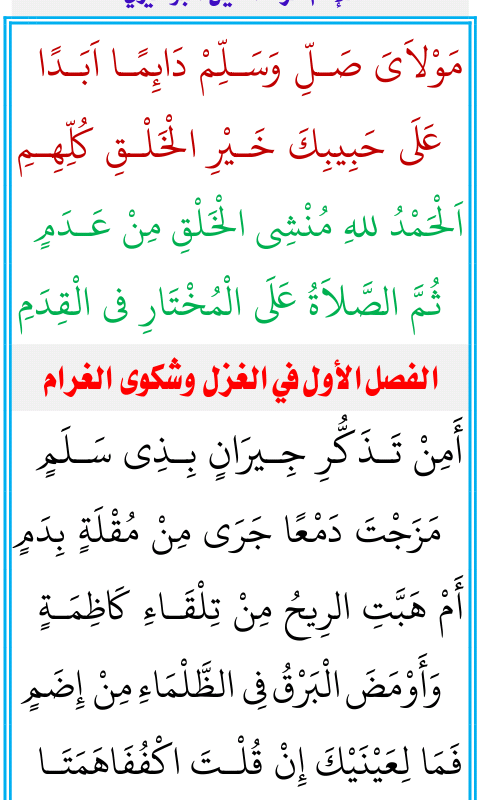 مَوْلاَىَ صَــلِّ وَسَــلِّمْ دَائِمًــا اَبَــدًا
عَلَى حَبِيبِكَ خَــيْرِ الْخَلْــقِ كُلِّهِــمِ
اَلْحَمْدُ للهِ مُنْشِى الْخَلْقِ مِنْ عَــدَمٍ
ثُمَّ الصَّلاَةُ عَلَى الْمُخْتَارِ فِى الْقِدَمِ
الفصل الأول في الغزل وشكوى الغرام
أَمِنْ تَــذَكُّرِ جِــيرَانٍ بِــذِى سَــلَمٍ
مَزَجْتَ دَمْعًا جَرَى مِنْ مُقْلَةٍ بِدَمٍ
أَمْ هَبَّتِ الرِيحُ مِنْ تِلْقَــاءِ كَاظِمَــةٍ
وَأَوْمَضَ الْبَرْقُ فِى الظَّلْمَاءِ مِنْ إِضَمٍ
فَمَا لِعَيْنَيْكَ إِنْ قُلْــتَ اكْفُفَاهَمَتَــا